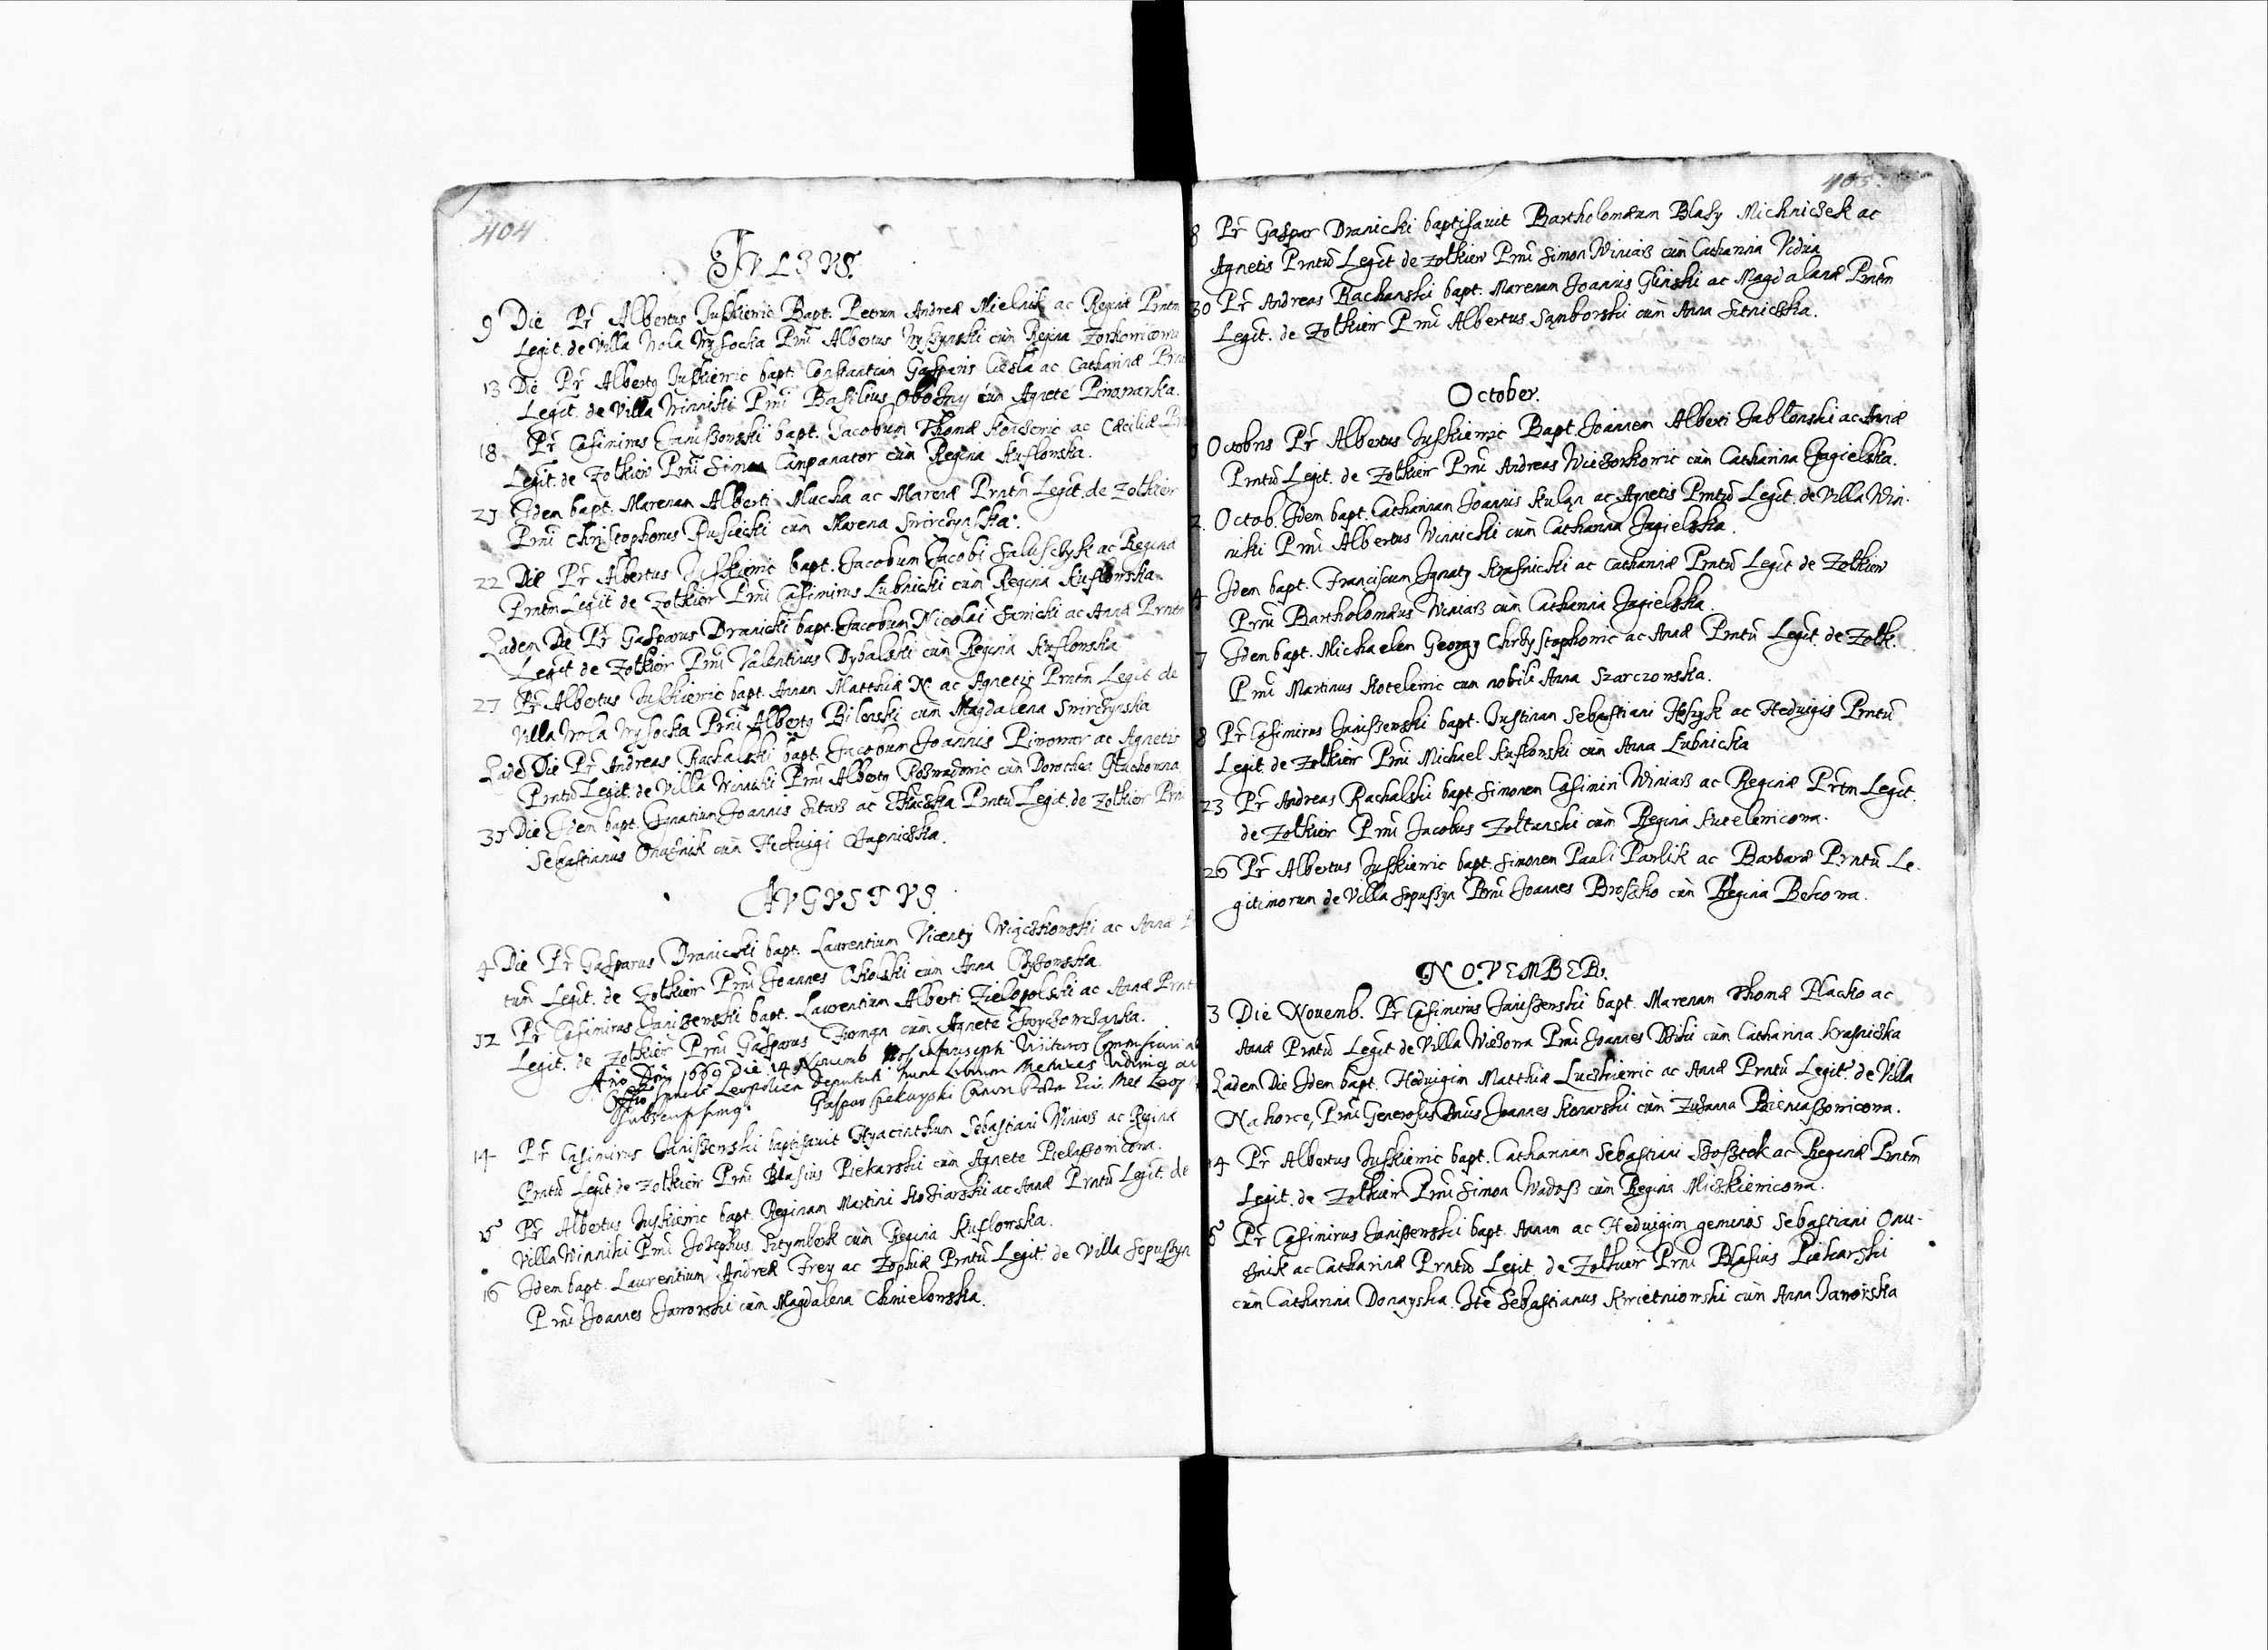 404
IVLIVS.
9 Die Pr Albertus Juskiewic Bapt. Petrum Andreæ Mielnik ac Reginæ Prntm
Legit. de Villa Wola Wysocka Prni Albertus Wyszynski cum Regina Zorkowicowa
13 Die Pr Albertg Juskiewic bapt. Constantian Gasparis Ciesla ac Catharinæ Prn
Legit. de Villa Winniki Prni Basilius Obozny cum Agnete Piwowarka.
18. Pr Casimirus Janiszowski bapt. Jacobum Thomæ ac Cæciliæ
Legit. de Zolkiew Prni Simon Campanator cum Regina Kuslowska.
21 Idem bapt. Marenam Alberti Mucha ac Marenæ Prntm Legit. de Zolkiew
Prni Christophorus Rusiecki cum Marena Swirczynska.
22 Die Pr Albertus Juskiewic bapt. Jacobum Jacobi Faluszyk ac Reginæ
Prntm Legit de Zolkiew Prni Casimirus Lubnicki cum Regina Kuslowska.
Eadem Die Pr Gasparus Dranicki bapt. Jacobum Nicolai Sanicki ac Annæ Prntm
Legit de Zolkiew Prni Valentinus Dybalski cum Regina Kuslowska
27 Pr Albertus Juskiewic bapt. Annam Matthiæ N ac Agnetis Prntm Legit de
Villa Wola Wysocka Prni Albertg Bilenski cum Magdalena Swirczynska
Eadē Die Pr Andreas Rachalski bapt. Jacobum Joannis Piwowar ac Agnetis
Prntū Legit. de Villa Winniki Prni Albertg Rozwadowic cum Dorothea Głuchowna
31 Die Idem bapt. Ignatium Joannis Sitarz ac Prntū Legit. de Zolkiew Prni
Sebastianus Onuźnik cum Hedwigi Japniczka.
AVGVSTVS.
4 Die Pr Gasparus Dranicki bapt. Laurentium Vicenty Wiączkowski ac Anna
tum Legit. de Zolkiew Prni Joannes Cholski cum Anna
12 Pr Casimirus Janiszewski bapt. Laurentium Alberti Zielopolski ac Annæ Prnt
Legit. de Zolkiew Prni Gasparus Furman cum Agnete
Año Dñi 1669 Die 14 Novemb Nos infrascripti
Leopolien Deputati hunc Librum Metrices vidimg
Subscripsimg. Gaspar Canon
14 Pr Casimirus Janiszenski baptisauit Hyacinthum Sebastiani Winiarz ac Reginæ
Prntū Legit de Zolkiew Prni Blasius Piekarski cum Agnete Pielaszowicowa.
15 Pr Albertus Juskiewic bapt. Reginam Martini Koziarski ac Annæ Prntū Legit. de
Villa Winniki Prni Josephus Sztymberk cum Regina Kuslowska.
16 Idem bapt. Laurentium Andreæ Frey ac Zophiæ Prntū Legit. de Villa Sopuszyn
Prni Joannes Jaworski cum Magdalena Chmielowska.
405.
8 Pr Gaspar Dranicki baptisauit Bartholomæum Blasy Michniczek ac
Agnetis Prntū Legit de Zolkiew Prni Simon Winiarz cum Catharina Vidua
30 Pr Andreas Rachanski bapt. Marenam Joannis Glinski ac Magdalenæ Prntm
Legit. de Zolkiew Prni Albertus Sąmborski cum Anna Sitniczka.
October.
Octobris Pr Albertus Juskiewic Bapt. Joannem Alberti Jabłonski ac Annæ
Prntū Legit. de Zolkiew Prni Andreas Wieczorkowic cum Catharina Jagielska.
2. Octob. Idem bapt. Catharinam Joannis Kuląn ac Agnetis Prntū Legit. de Villa Win-
niki Prni Albertus Winnicki cum Catharina Jagielska.
4 Idem bapt. Franciscum Ignaty Krasnicki ac Catharinæ Prntū Legit de Zolkiew
Prni Bartholomæus Winiarz cum Catharina Jagielska.
7 Idem bapt. Michaelem Georgy Chrzysztophowic ac Annæ Prntū Legit. de Zolk.
Prni Martinus Kotelewic cum nobili Anna Szarczowska.
8 Pr Casimirus Janiszewski bapt. Justinam Sebastiani ac Hedwigis Prntū
Legit. de Zolkiew Prni Michael Kuslowski cum Anna Lubnicka
23 Pr Andreas Rachalski bapt. Simonem Casimiri Winiarz ac Reginæ Prtm Legit.
de Zolkiew Prni Jacobus Zoltanski cum Regina Kutelewicowa.
26 Pr Albertus Juskiewic bapt. Simonem Pauli Pawlik ac Barbaræ Prntū Le-
gitimorum de Villa Sopuszyn Prni Joannes Broszko cum Regina Bekowa.
NOVEMBER.
3 Die Nouemb. Pr Casimirus Janiszenski bapt. Marenam Thomæ Placko ac
Annæ Prntū Legit de Villa Wiezowa Prni Joannes cum Catharina Krasniczka
Eadem Die Idem bapt. Hedwigim Matthiæ Luczkiewic ac Annæ Prntū Legit. de Villa
Nahorce, Prni Generosus Dnus Joannes Konarski cum Zuzanna Bieniaszowicowa.
14 Pr Albertus Juskiewic bapt. Catharinam Sebastiani Szosztek ac Reginæ Prntm
Legit. de Zolkiew Prni Simon Wadosz cum Regina Mickiewicowa.
Pr Casimirus Janiszewski bapt. Annam ac Hedwigim geminos Sebastiani Onu-
źnik ac Catharinæ Prntū Legit. de Zolkiew Prni Blasius Piekarski
cum Catharina Donayska. Ite Sebastianus Kwietniowski cum Anna Jaworska